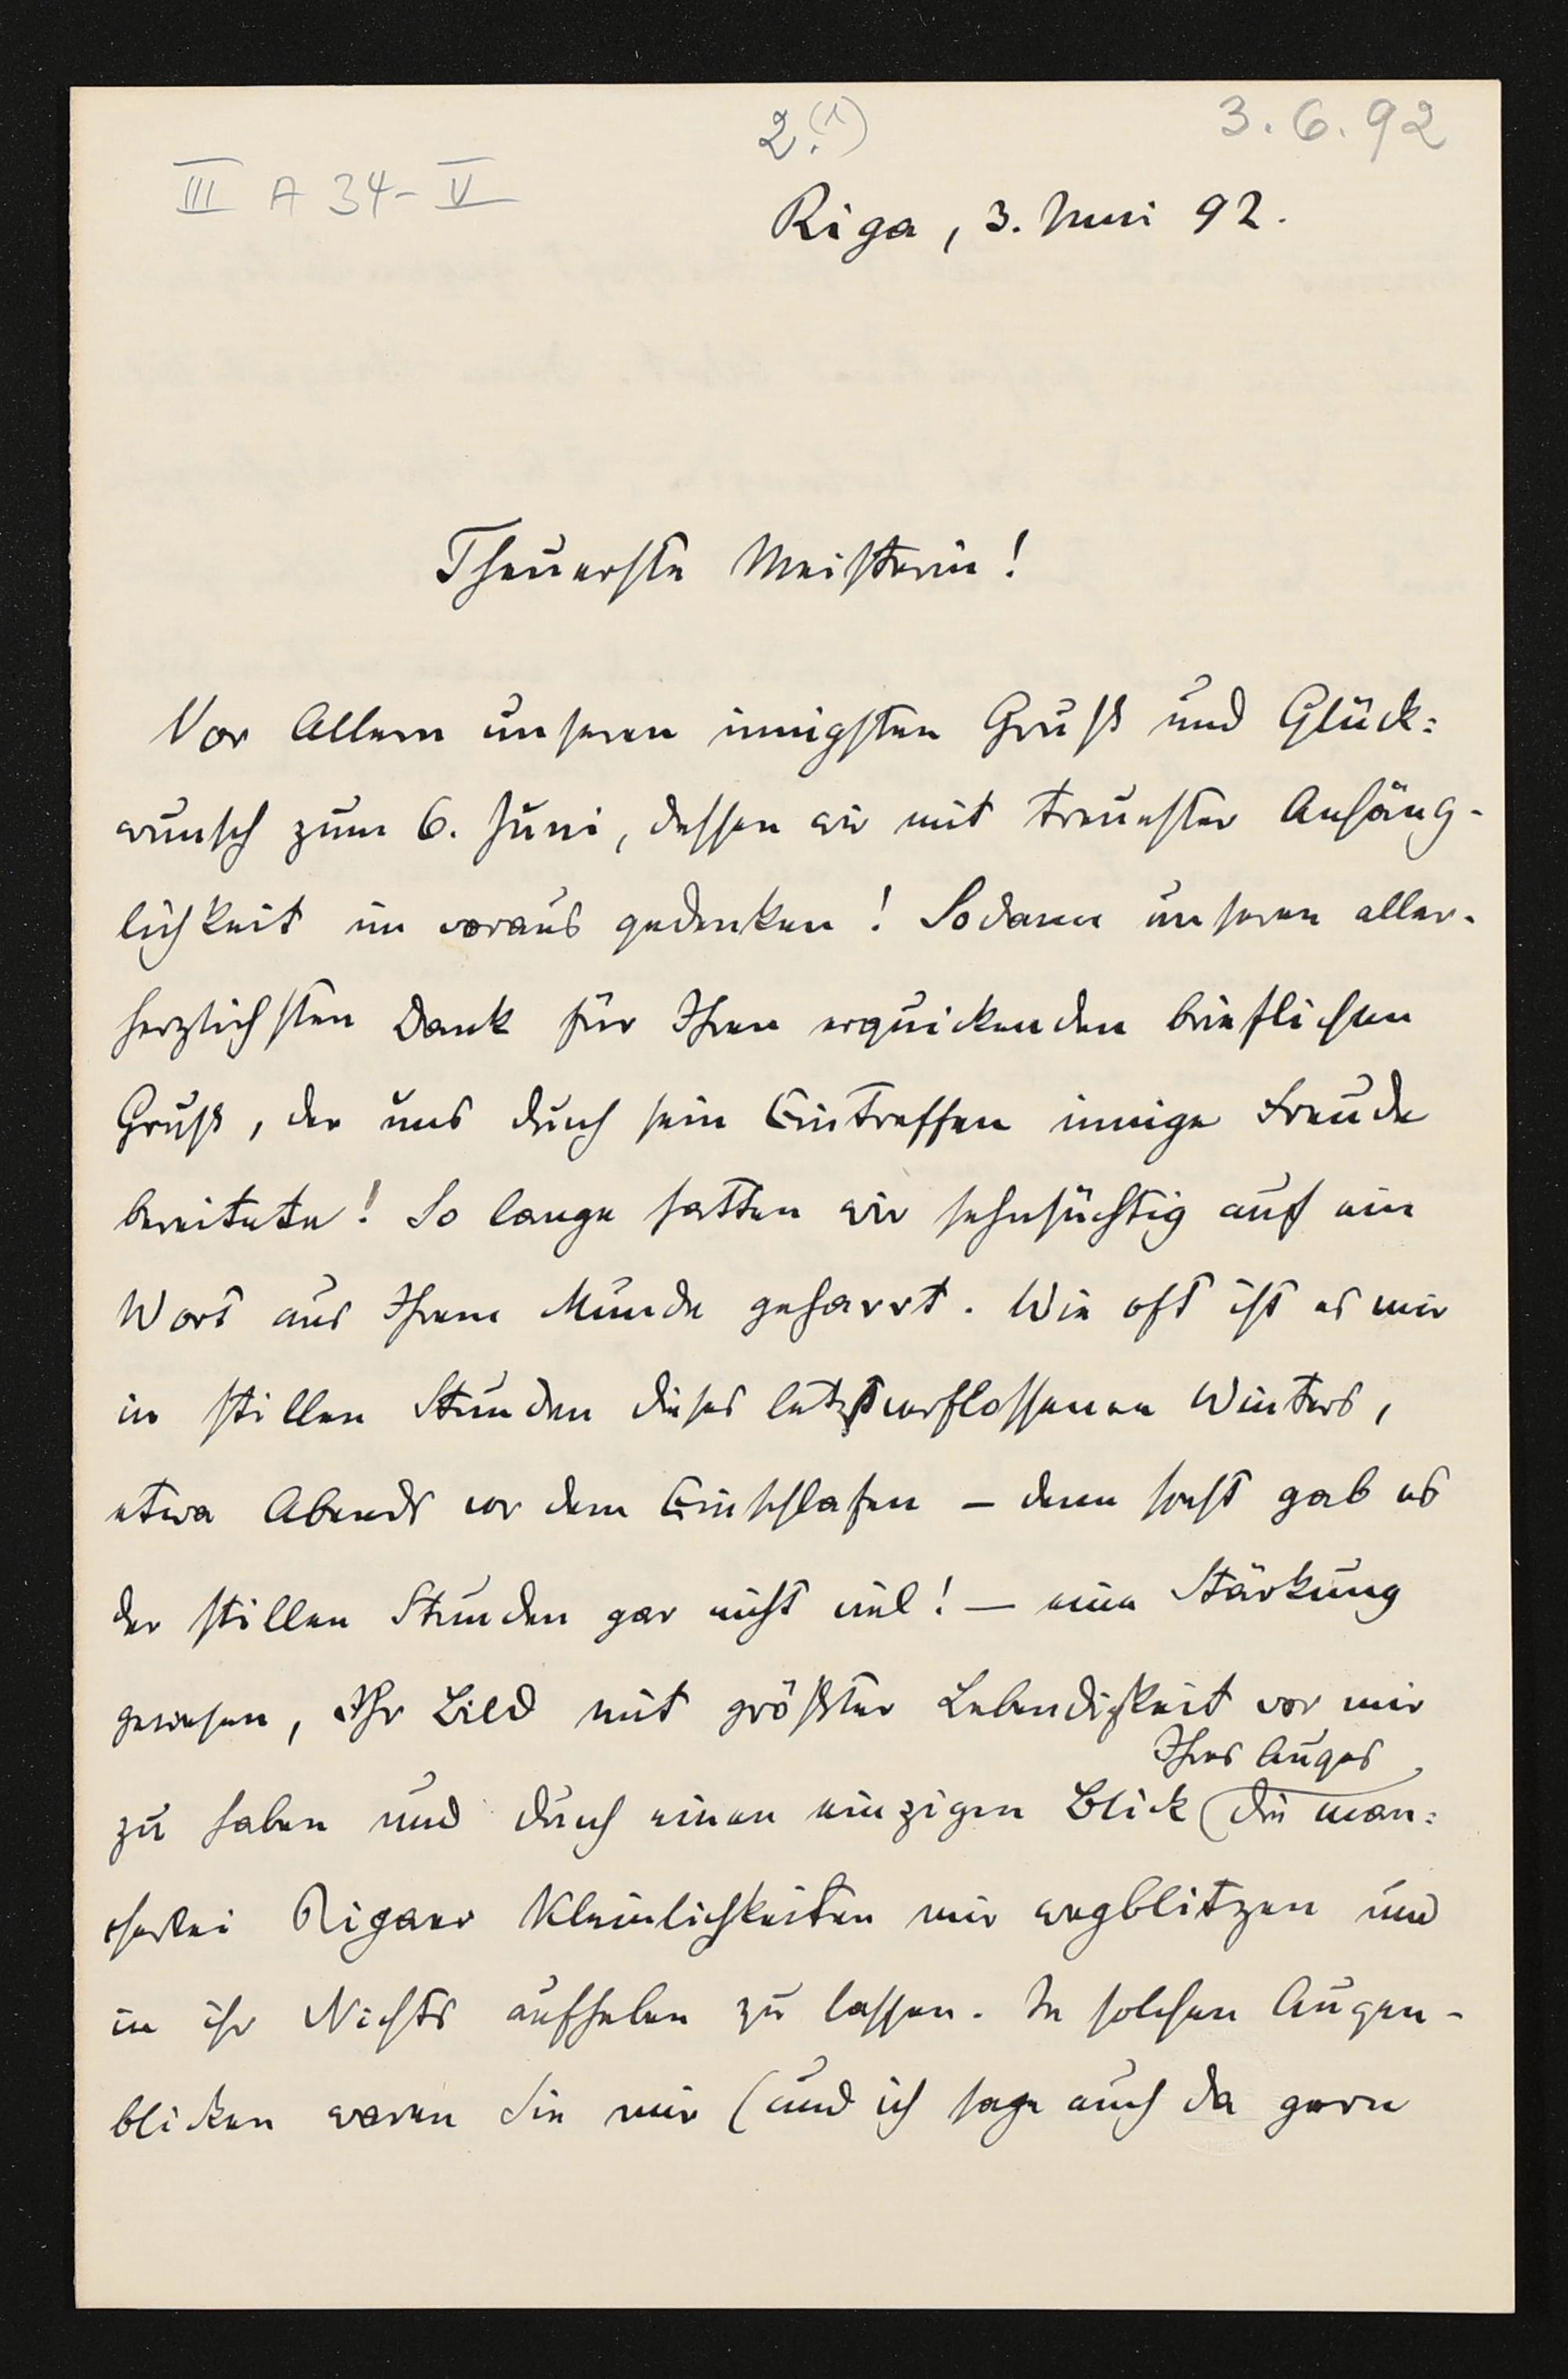 2.(1)
3.6.92
III A 34-V
Riga, 3. Juni 92.
Theuerste Meisterin!
Vor Allem unseren innigsten Gruß und Glück=
wunsch zum 6. Juni, dessen wir mit treuester Anhäng-
lichkeit im voraus gedenken! Sodann unseren aller-
herzlichsten Dank für Ihren erquickenden brieflichen
Gruß, der uns durch sein Eintreffen innige Freude
bereitete! So lange hatten wir sehnsüchtig auf ein
Wort aus Ihrem Munde geharrt. Wie oft ist es mir
in stillen Stunden dieses letztverflossenen Winters,
etwa Abends vor dem Einschlafen – denn sonst gab es
der stillen Stunden gar nicht viel! – eine Stärkung
gewesen, Ihr Bild mit größter Lebendigkeit vor mir
Ihres Auges
zu haben und durch einen einzigen Blick die man=
cherlei Rigaer Kleinlichkeiten mir wegblitzen und
in ihr Nichts aufheben zu lassen. In solchen Augen-
blicken waren Sie mir (und ich sage auch da gern